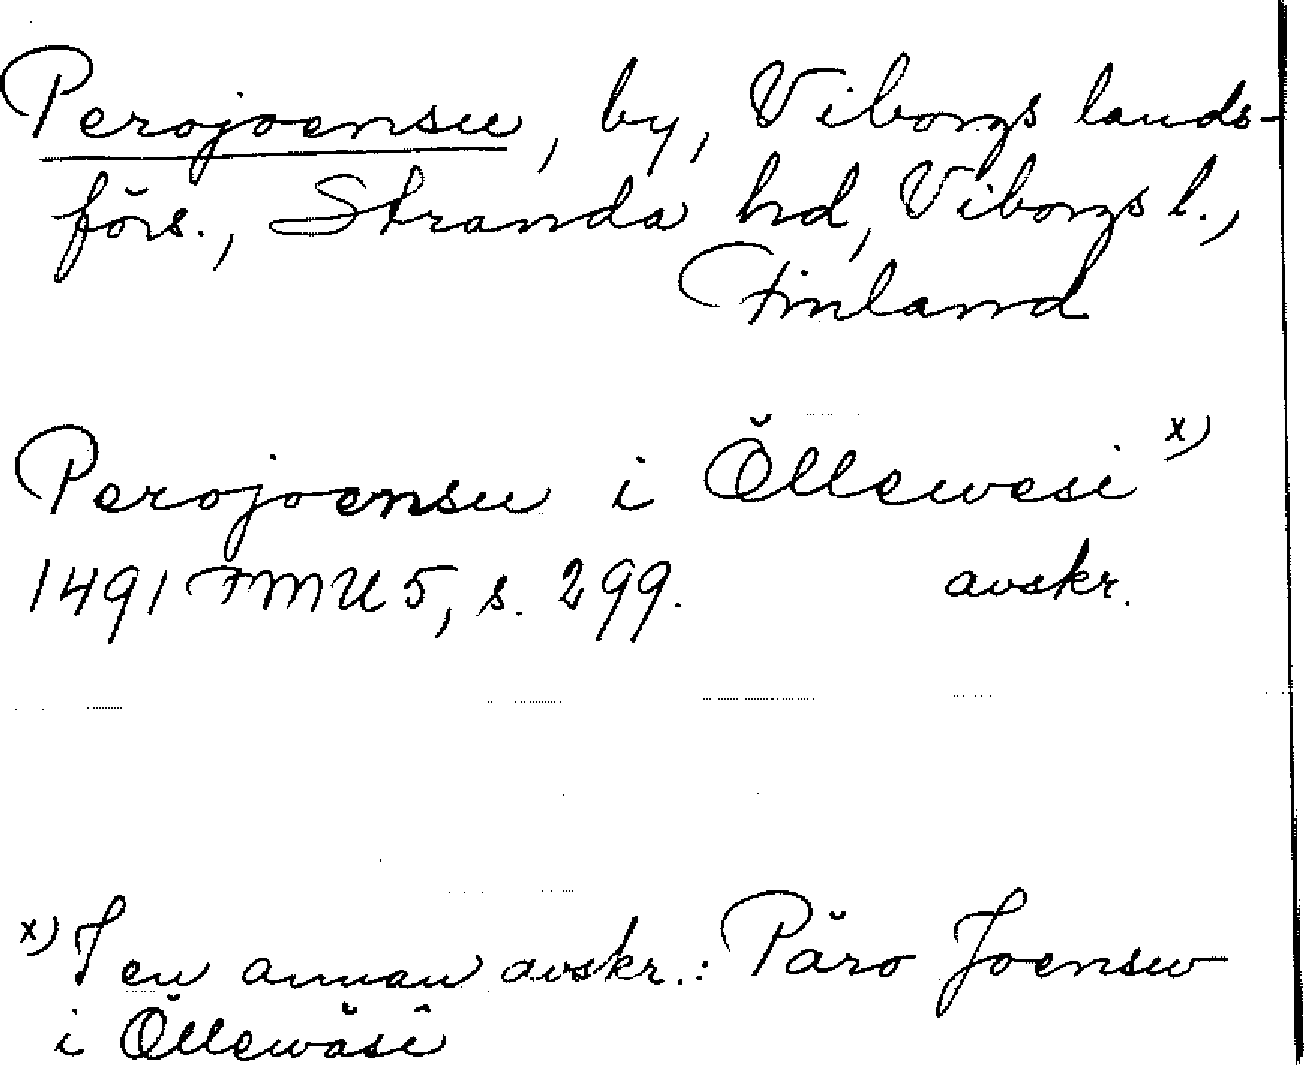 Perojoensuu, by, Viborgs lands-
förs., Stranda hd, Viborgs l.,
Finland
Perojoensuu i Öllewesi x)
1491 FMU 5, s. 299. avskr.
x) I en annan avskr.: Päro Joensw
i Öllewäsi